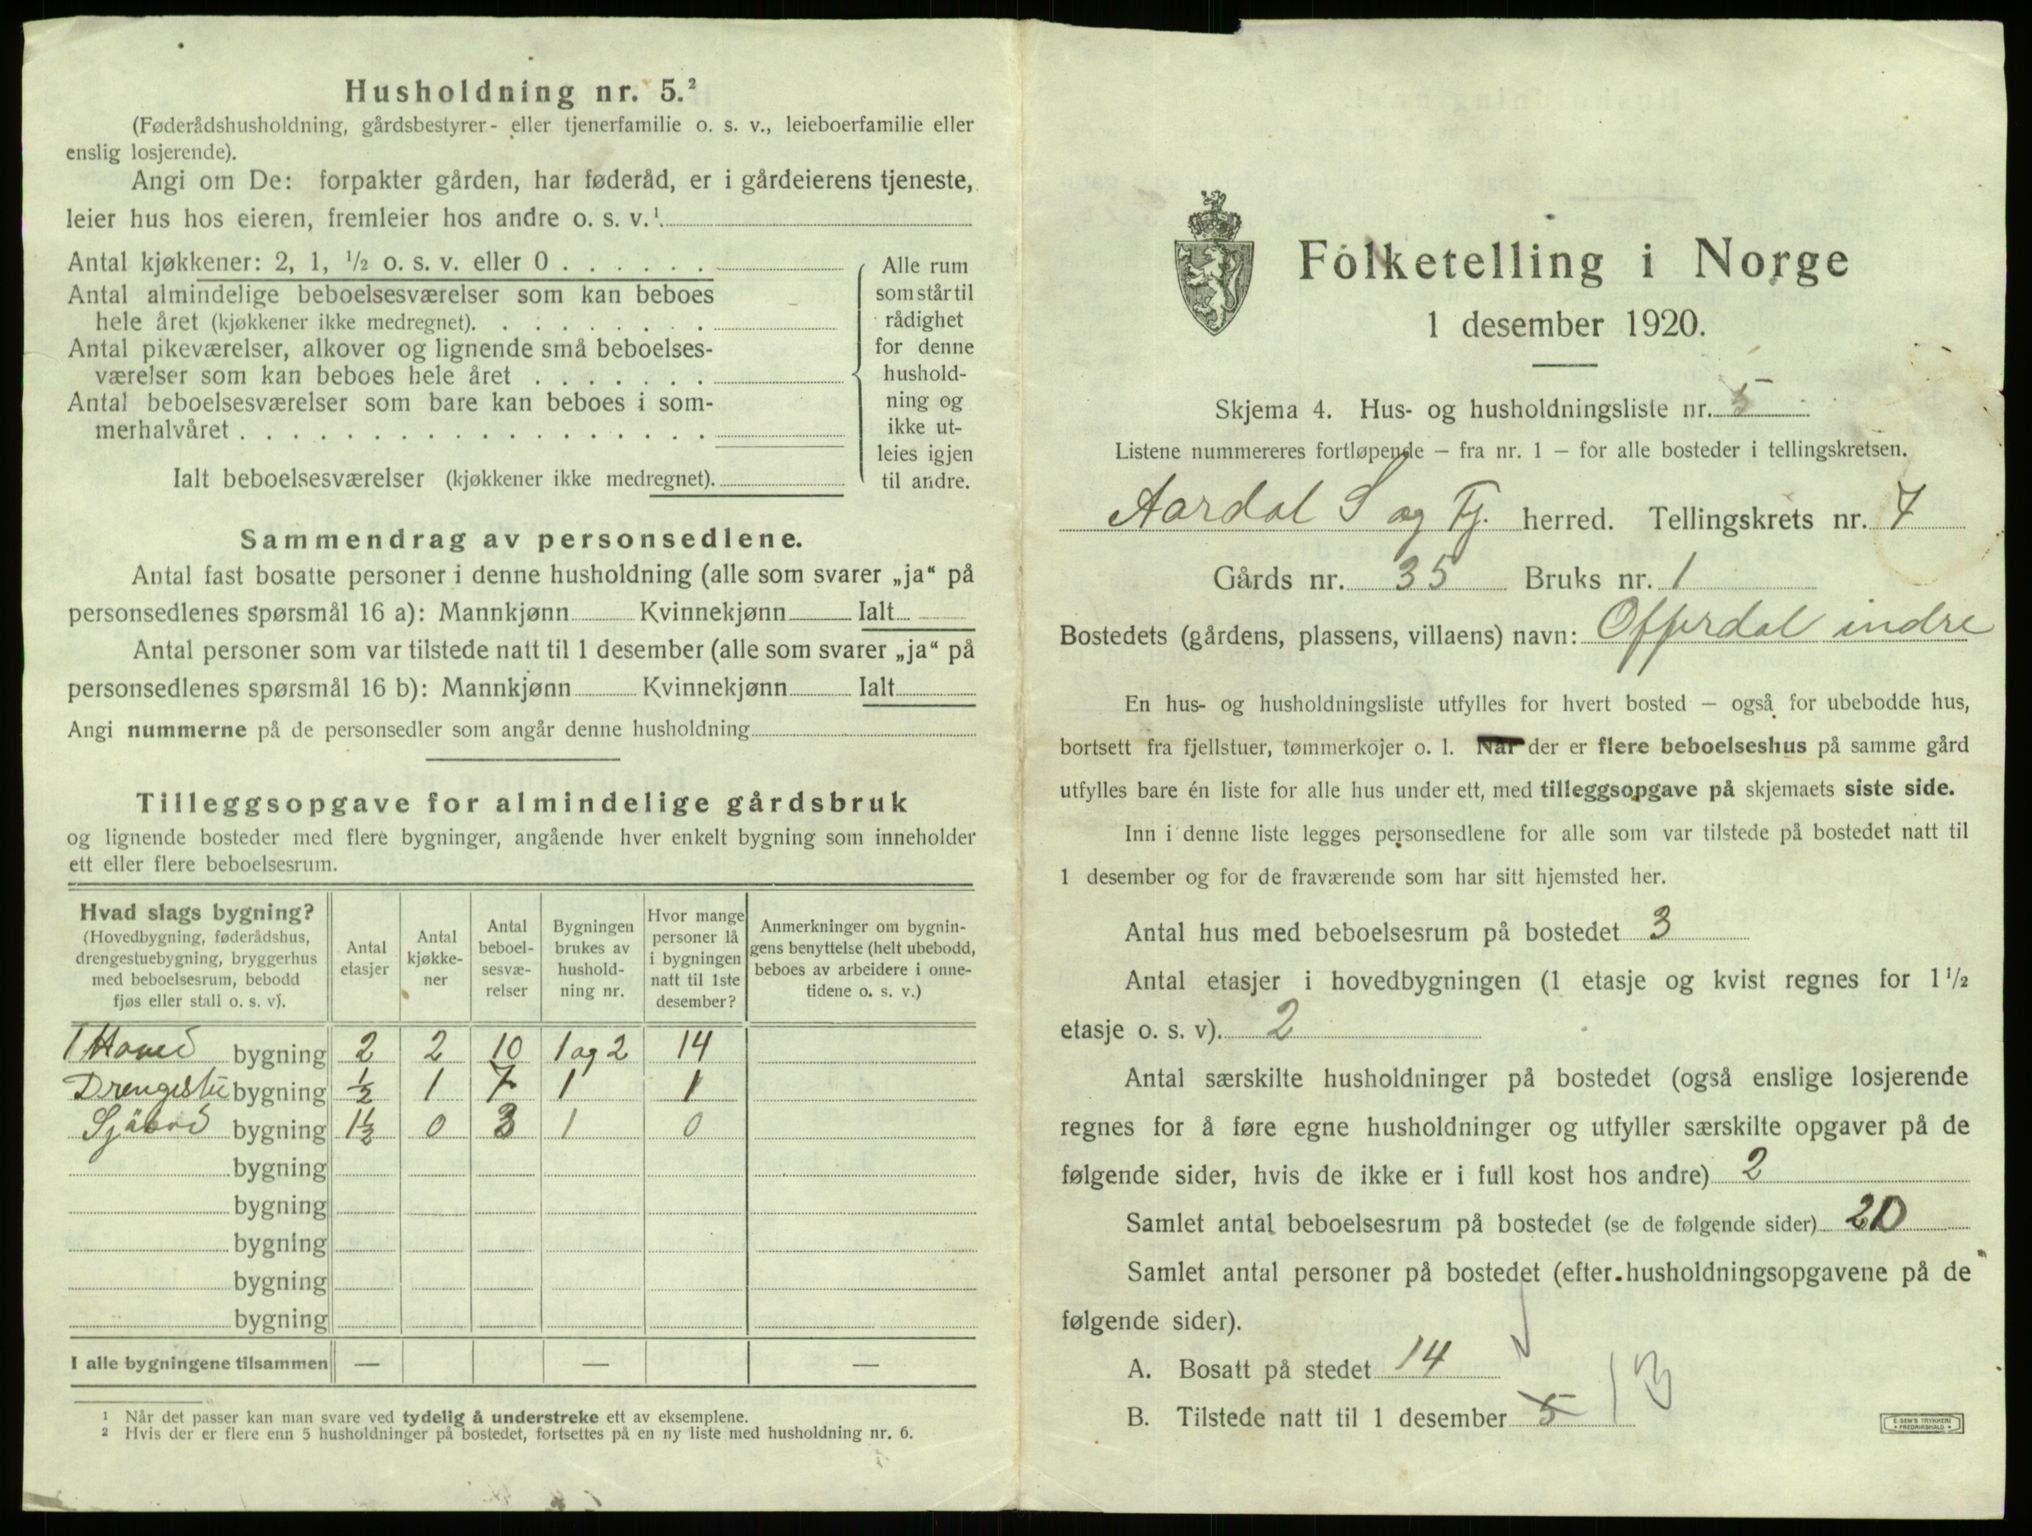 Husholdning nr. 5.²
(Føderådshusholdning, gårdsbestyrer- eller tjenerfamilie o. s. v., leieboerfamilie eller
enslig losjerende).
Angi om De: forpakter gården, har føderåd, er i gårdeierens tjeneste,
leier hus hos eieren, fremleier hos andre o. s. v.¹
Antal kjøkkener: 2, 1, ½ o. s. v. eller 0
Antal almindelige beboelsesværelser som kan beboes
hele året (kjøkkener ikke medregnet).
Antal pikeværelser, alkover og lignende små beboelses-
værelser som kan beboes hele året
Antal beboelsesværelser som bare kan beboes i som-
merhalvåret
Ialt beboelsesværelser (kjøkkener ikke medregnet).
Alle rum
som står til
rådighet
for denne
hushold-
ning og
ikke ut-
leies igjen
til andre.
Sammendrag av personsedlene.
Antal fast bosatte personer i denne husholdning (alle som svarer „ja“ på
personsedlenes spørsmål 16 a): Mannkjønn Kvinnekjønn Ialt
Antal personer som var tilstede natt til 1 desember (alle som svarer „ja“ på
personsedlenes spørsmål 16 b): Mannkjønn Kvinnekjønn Ialt
Angi nummerne på de personsedler som angår denne husholdning
Tilleggsopgave for almindelige gårdsbruk
og lignende bosteder med flere bygninger, angående hver enkelt bygning som inneholder
ett eller flere beboelsesrum.
Hvad slags bygning?
(Hovedbygning, føderådshus,
drengestuebygning, bryggerhus
med beboelsesrum, bebodd
fjøs eller stall o. s. v).
Antal
etasjer
Antal
kjøkke-
ner
Antal
beboel-
sesvæ-
relser
Bygningen
brukes av
hushold-
ning nr.
Hvor mange
personer lå
i bygningen
natt til 1ste
desember?
Anmerkninger om bygnin-
gens benyttelse (helt ubebodd,
beboes av arbeidere i onne-
tidene o. s. v.)
1 Hoved bygning 2 2 10 1 og 2 14
Drengestu bygning ½ 1 7 1 1
bygning 1½ 0 3 1 0
bygning
bygning
bygning
bygning
bygning
I alle bygningene tilsammen — — —
¹ Når det passer kan man svare ved tydelig å understreke ett av eksemplene.
² Hvis der er flere enn 5 husholdninger på bostedet, fortsettes på en ny liste med husholdning nr. 6.
Folketelling i Norge
1 desember 1920.
Skjema 4. Hus- og husholdningsliste nr. 5
Listene nummereres fortløpende – fra nr. 1 – for alle bosteder i tellingskretsen.
Aardal S og Fj. herred. Tellingskrets nr. 7
Gårds nr. 35 Bruks nr. 1
Bostedets (gårdens, plassens, villaens) navn: Offerdal indre
En hus- og husholdningsliste utfylles for hvert bosted – også for ubebodde hus,
bortsett fra fjellstuer, tømmerkojer o. l. Når der er flere beboelseshus på samme gård
utfylles bare én liste for alle hus under ett, med tilleggsopgave på skjemaets siste side.
Inn i denne liste legges personsedlene for alle som var tilstede på bostedet natt til
1 desember og for de fraværende som har sitt hjemsted her.
Antal hus med beboelsesrum på bostedet 3
Antal etasjer i hovedbygningen (1 etasje og kvist regnes for 1½
etasje o. s. v). 2
Antal særskilte husholdninger på bostedet (også enslige losjerende
regnes for å føre egne husholdninger og utfyller særskilte opgaver på de
følgende sider, hvis de ikke er i full kost hos andre) 2
Samlet antal beboelsesrum på bostedet (se de følgende sider) 20
Samlet antal personer på bostedet (efter husholdningsopgavene på de
følgende sider).
A. Bosatt på stedet 14
B. Tilstede natt til 1 desember 5 13
E. SEM'S TRYKKERI
FREDRIKSHALD